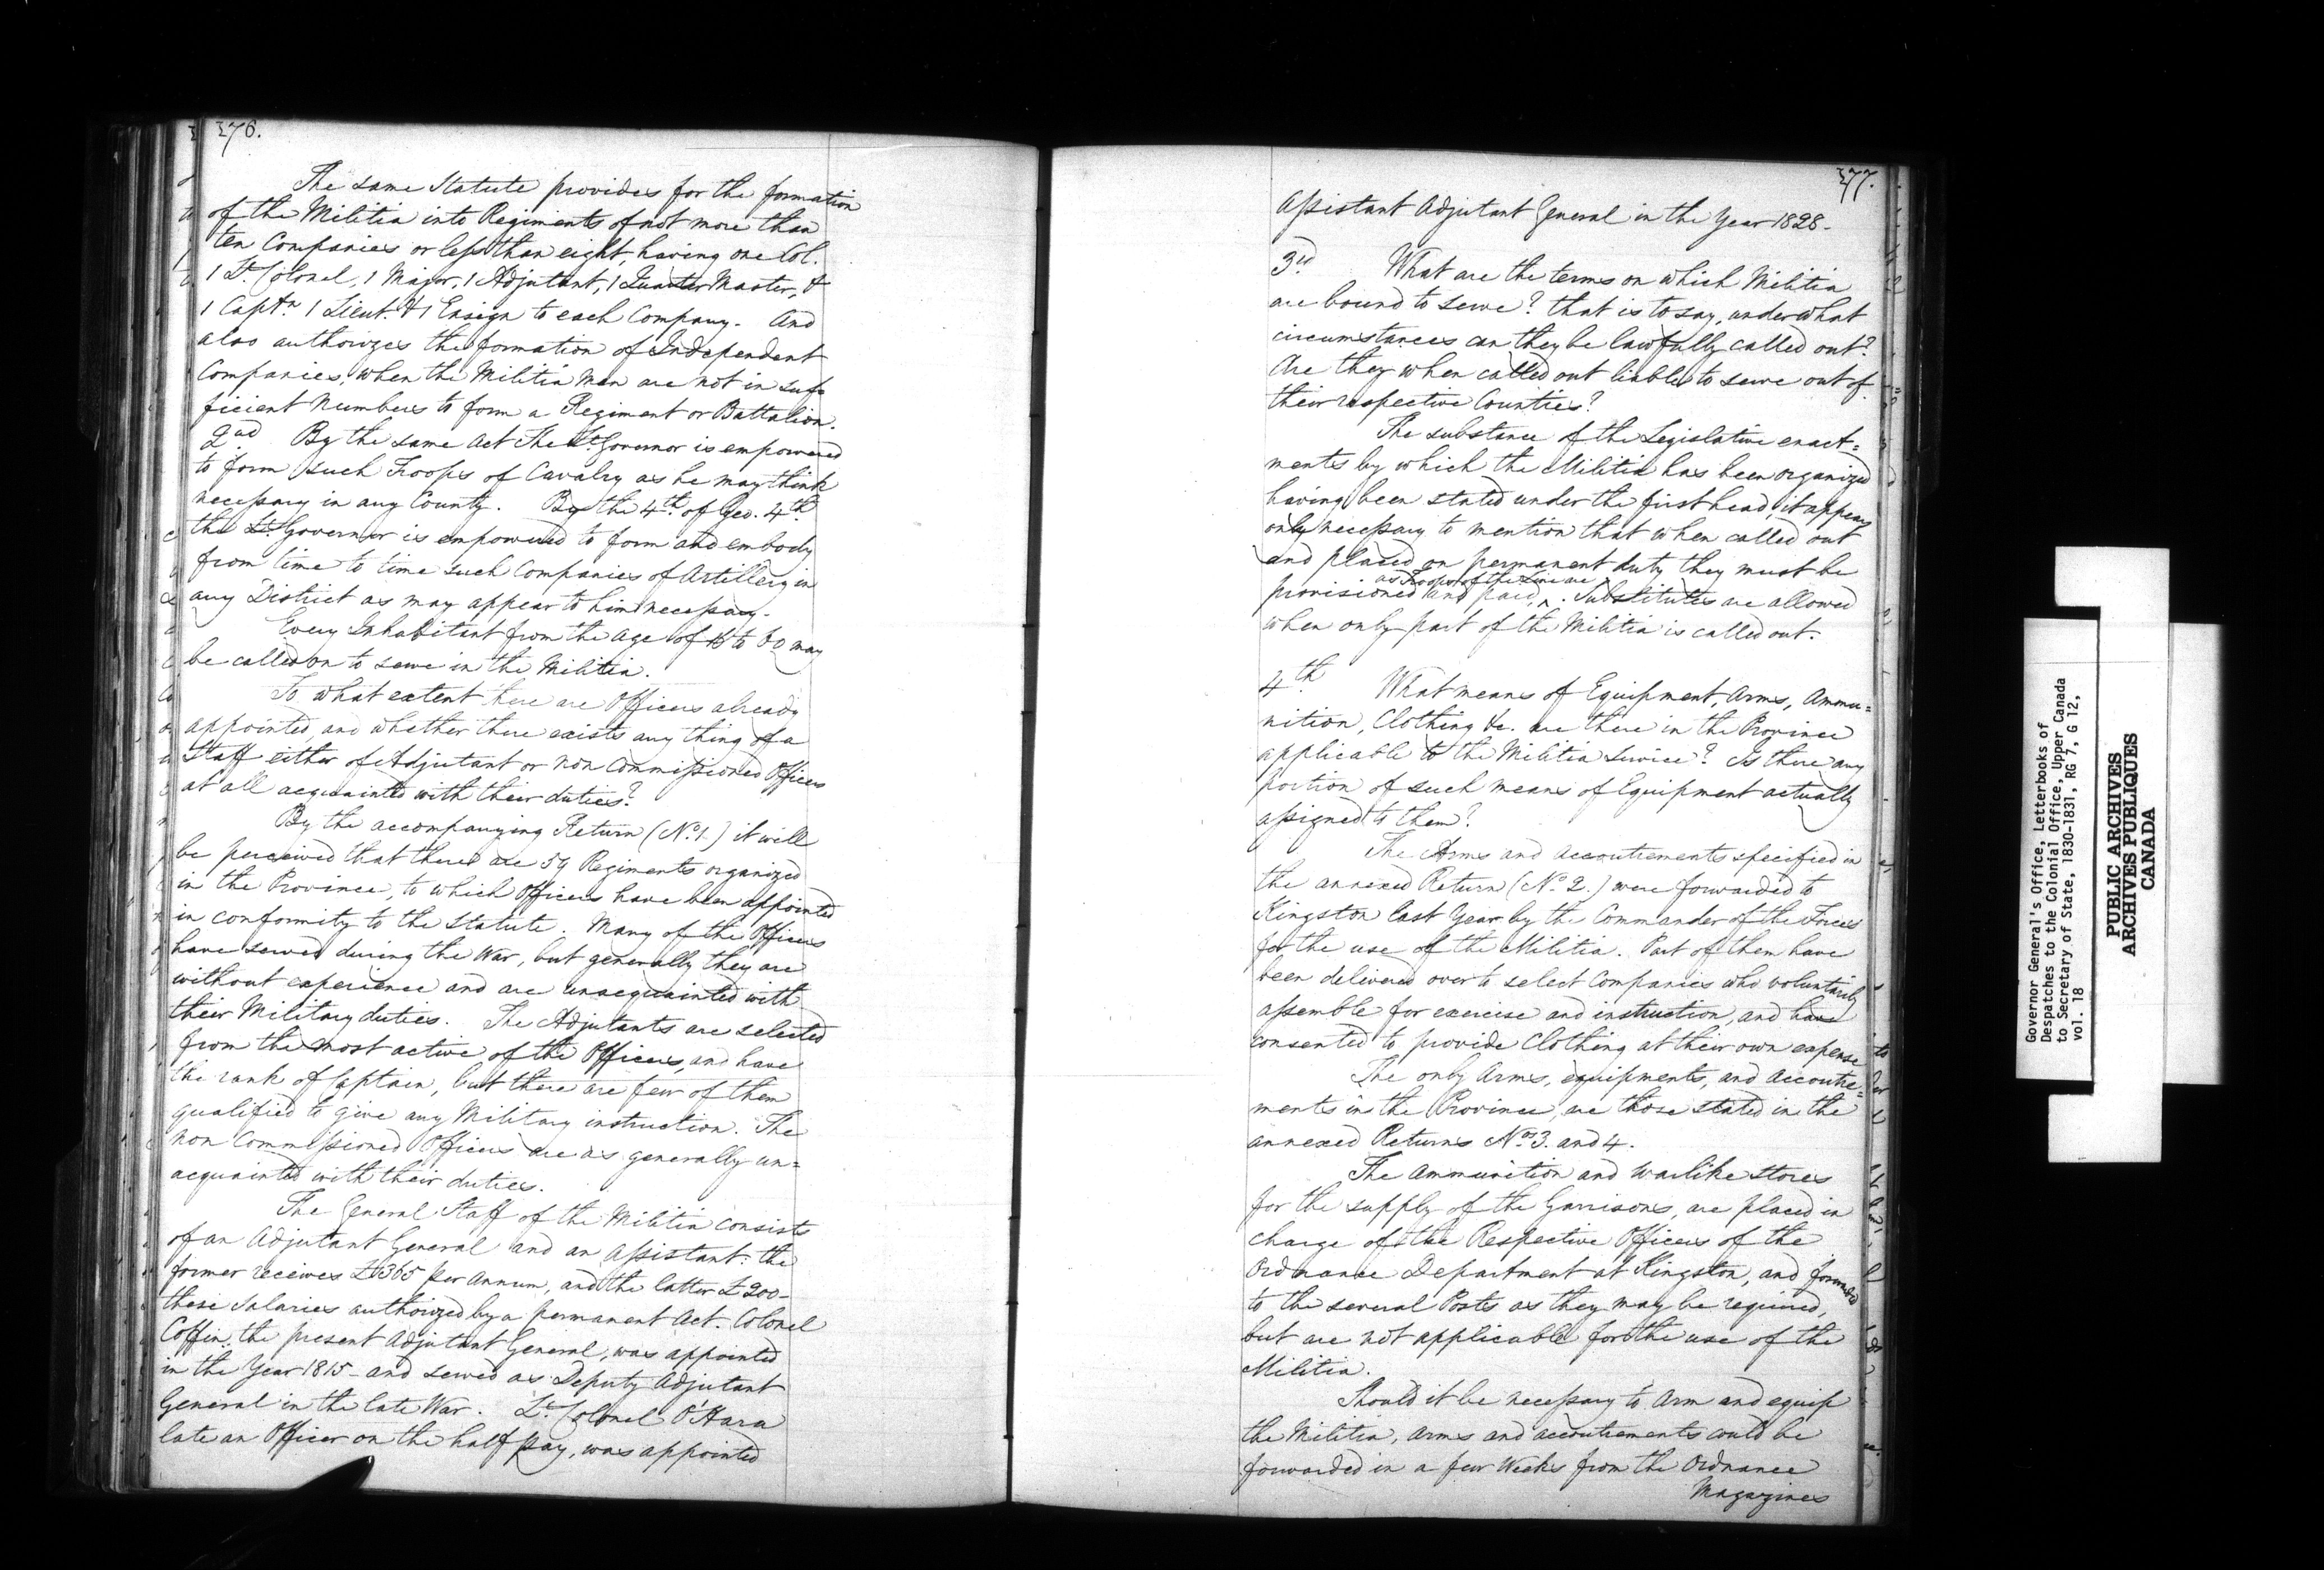 376.
The same Statute provides for the formation
of the Militia into Regiments of not more than
ten Companies or less than eight, having one Col.
1 Lt. Colonel, 1 Major, 1 Adjutant, 1 Quarter Master, &
1 Captn. 1 Lieut. & 1 Ensign to each Company. And
also authorizes the formation of Independent
Companies, when the Militia Men are not in suf-
ficient Numbers to form a Regiment or Battalion.
2nd By the same Act the Lt. Governor is empowered
to form such Troops of Cavalry as he may think
necessary in any County. By the 4th. of Geo. 4th.
the Lt. Governor is empowered to form and embody
from time to time such Companies of Artillery in
any District as may appear to him necessary.
Every Inhabitant from the age of to 60 may
be called on to serve in the Militia.
To what extent there are Officers already
appointed, and whether there exists any thing of a
Staff either of Adjutant or Non Commissioned Officers
at all acquainted with their duties?
By the accompanying Return (No. 1.) it will
be perceived that there are 59 Regiments organized
in the Province, to which Officers have been appointed
in conformity to the Statute. Many of the Officers
have served during the War, but generally they are
without experience and are unacquainted with
their Military duties. The Adjutants are selected
from the most active of the Officers, and have
the rank of Captain, but there are few of them
qualified to give any Military instruction. The
Non Commissioned Officers are as generally un=
acquainted with their duties.
The General Staff of the Militia consists
of an Adjutant General and an Assistant: the
former receives £365 per Annum, and the latter £200-
these Salaries authorized by a permanent Act. Colonel
Coffin, the present Adjutant General, was appointed
in the Year 1815 - and served as Deputy Adjutant
General in the late War. Lt. Colonel O'Hara
late an Officer on the half pay, was appointed
377.
Assistant Adjutant General in the Year 1828-
3rd. What are the terms on which Militia
are bound to serve? that is to say, under what
circumstances can they be lawfully called out?
Are they when called out liable to serve out of
their respective Counties?
The substance of the Legislative enact=
ments by which the Militia has been organized
having been stated under the first head, it appears
only necessary to mention that when called out
and placed on permanent duty they must be
as Troops of the Line are
provisioned and paid, ^. Substitutes are allowed
when only part of the Militia is called out.
4th. What means of Equipment, Arms, Ammu=
nition, Clothing &c. are there in the Province
applicable to the Militia Service? Is there any
portion of such means of Equipment actually
assigned to them?
The Arms and accoutrements specified in
the annexed Return (No. 2.) were forwarded to
Kingston last Year by the Commander of the Forces
for the use of the Militia. Part of them have
been delivered over to select Companies who voluntarily
assemble for exercise and instruction, and have
consented to provide Clothing at their own expense
The only Arms, equipments, and accoutre=
ments in the Province, are those stated in the
annexed Returns Nos. 3. and 4.
The Ammunition and Warlike Stores
for the supply of the Garrisons, are placed in
charge of the Respective Officers of the
Ordnance Department at Kingston, and forwarded
to the several Posts as they may be required,
but are not applicable for the use of the
Militia.
Should it be necessary to Arm and equip
the Militia, arms and accoutrements could be
forwarded in a few Weeks from the Ordnance
Magazines
Governor General's Office, Letterbooks of
Despatches to the Colonial Office, Upper Canada
to Secretary of State, 1830-1831, RG 7, G 12,
vol. 18
PUBLIC ARCHIVES
ARCHIVES PUBLIQUES
CANADA